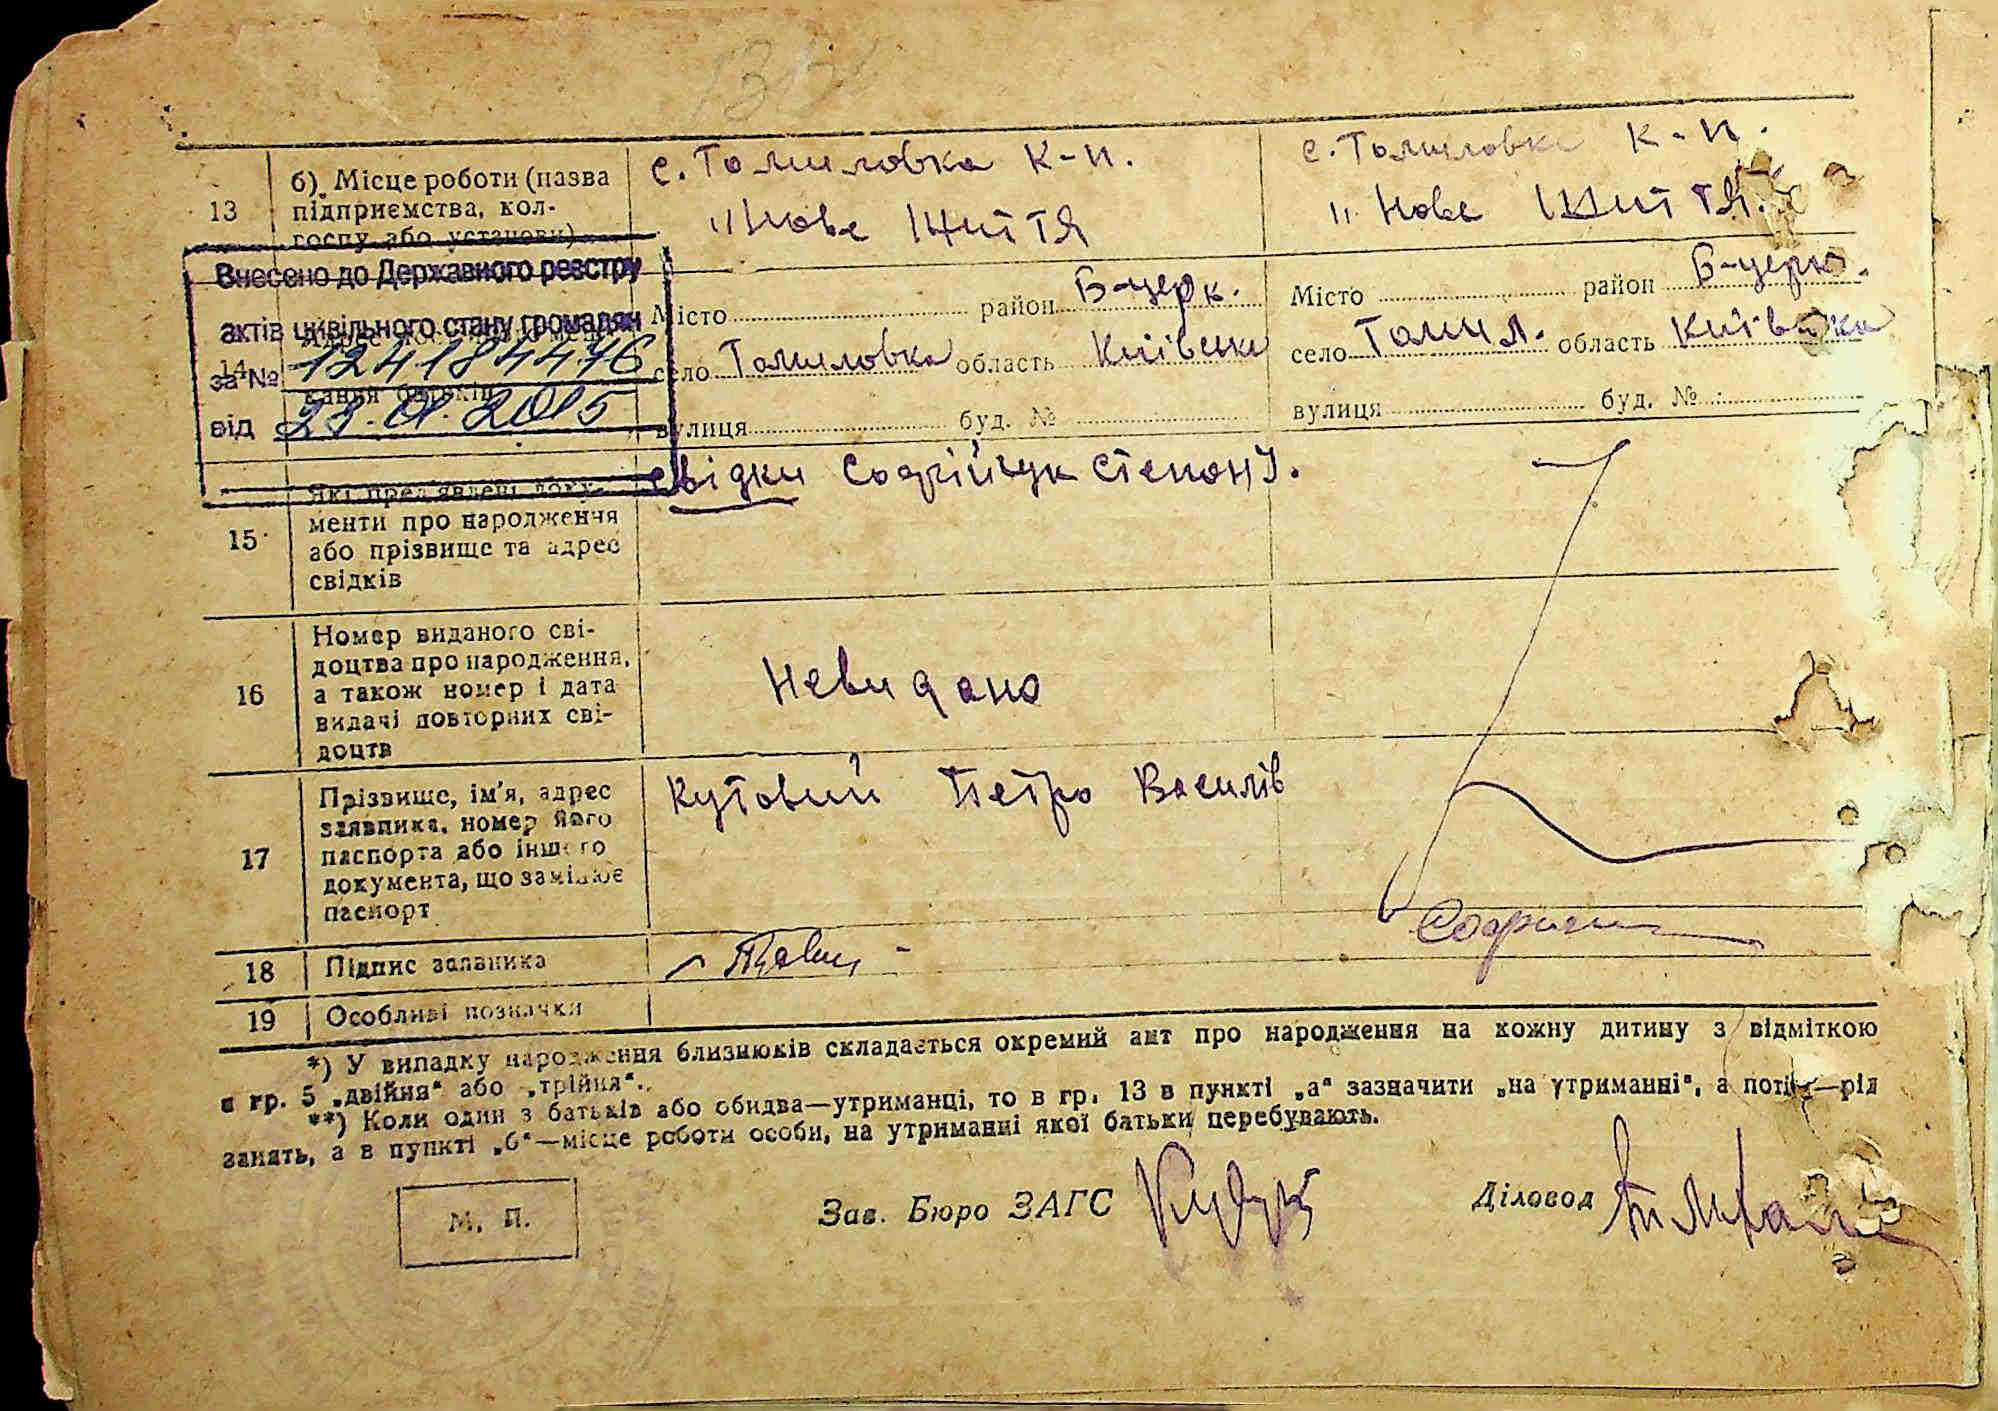 13
б) Місце роботи (назва
підприємства, кол-
госпу або установи)
с. Томиловка К-п.
"Нове Життя
с. Томиловка К-п.
"Нове Життя.
Внесено до Державного реєстру
актів цивільного стану громадян
за № 1241844
від 2015
14
Місто район Б-церк.
село Томиловка область Київськ
вулиця буд. №
Місто район Б-церк.
село Томил. область Київська
вулиця буд. №
15
Які пред'явлені доку-
менти про народження
або прізвище та адрес
свідків
свідки Софійчук Степан У.
16
Номер виданого сві-
доцтва про народження,
а також номер і дата
видачі повторних сві-
доцтв
Невидано
17
Прізвище, ім'я, адрес
заявника, номер його
паспорта або іншого
документа, що замінює
паспорт
Кутовий Петро Василів
18
Підпис заявника
19
Особливі позначки
*) У випадку народження близнюків складається окремий акт про народження на кожну дитину з відміткою
в гр. 5 „двійня“ або „трійня“.
**) Коли один з батьків або обидва—утриманці, то в гр. 13 в пункті „а“ зазначити „на утриманні“, а потім—рід
занять, а в пункті „б“—місце роботи особи, на утриманні якої батьки перебувають.
М. П.
Зав. Бюро ЗАГС
Діловод